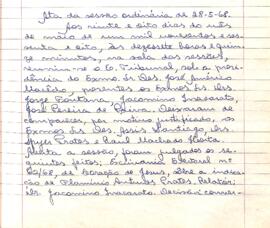 Ata da sessão ordinária de 28-5-68.
Aos vinte e oito dias do mês
de maio de um mil novecentos e ses-
senta e oito, às dezesete horas e quin-
ze minutos, na sala das sessões,
reuniu-se o E. Tribunal, sob a pre-
sidência do Exmo. Sr. Des. José Américo
Macêdo, presentes os Exmos. Srs. Drs.
Jorge Fontana, Jacomino Inacarato
José Pereira de Paiva. Deixaram de
comparecer, por motivo justificado, os
Exmos. Srs. Des. Assis Santiago, Drs.
Ayres Prates e Raul Machado Horta.
Aberta a sessão, foram julgados os se-
guintes feitos: Eleitoral nº
62/68, de Coração de Jesus, sôbe a indi-
cação de Antunes Prates. Relator:
Dr. Jacomino Inacarato. Decisão: conver-